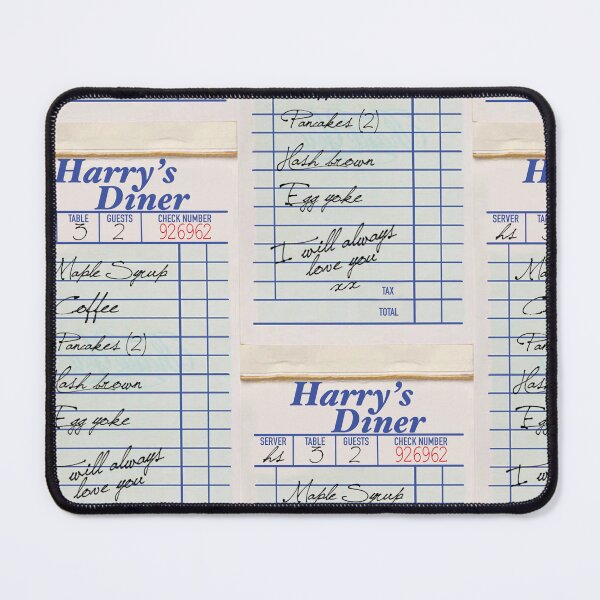 Harry's
Diner
TABLE GUESTS CHECK NUMBER
3 2 926962
Maple Syrup
Coffee
Pancakes (2)
Hash brown
Egg yoke
will always
love you
Pancakes (2)
Hash brown
Egg yoke
I will always
love you
xx
TAX
TOTAL
Harry's
Diner
SERVER TABLE GUESTS CHECK NUMBER
hs 3 2 926962
Maple Syrup
H
SERVER TA
hs 3
Ma
C
Pan
Has
Egg
I w